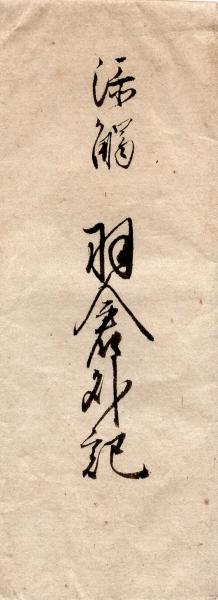 添觸
羽倉外記